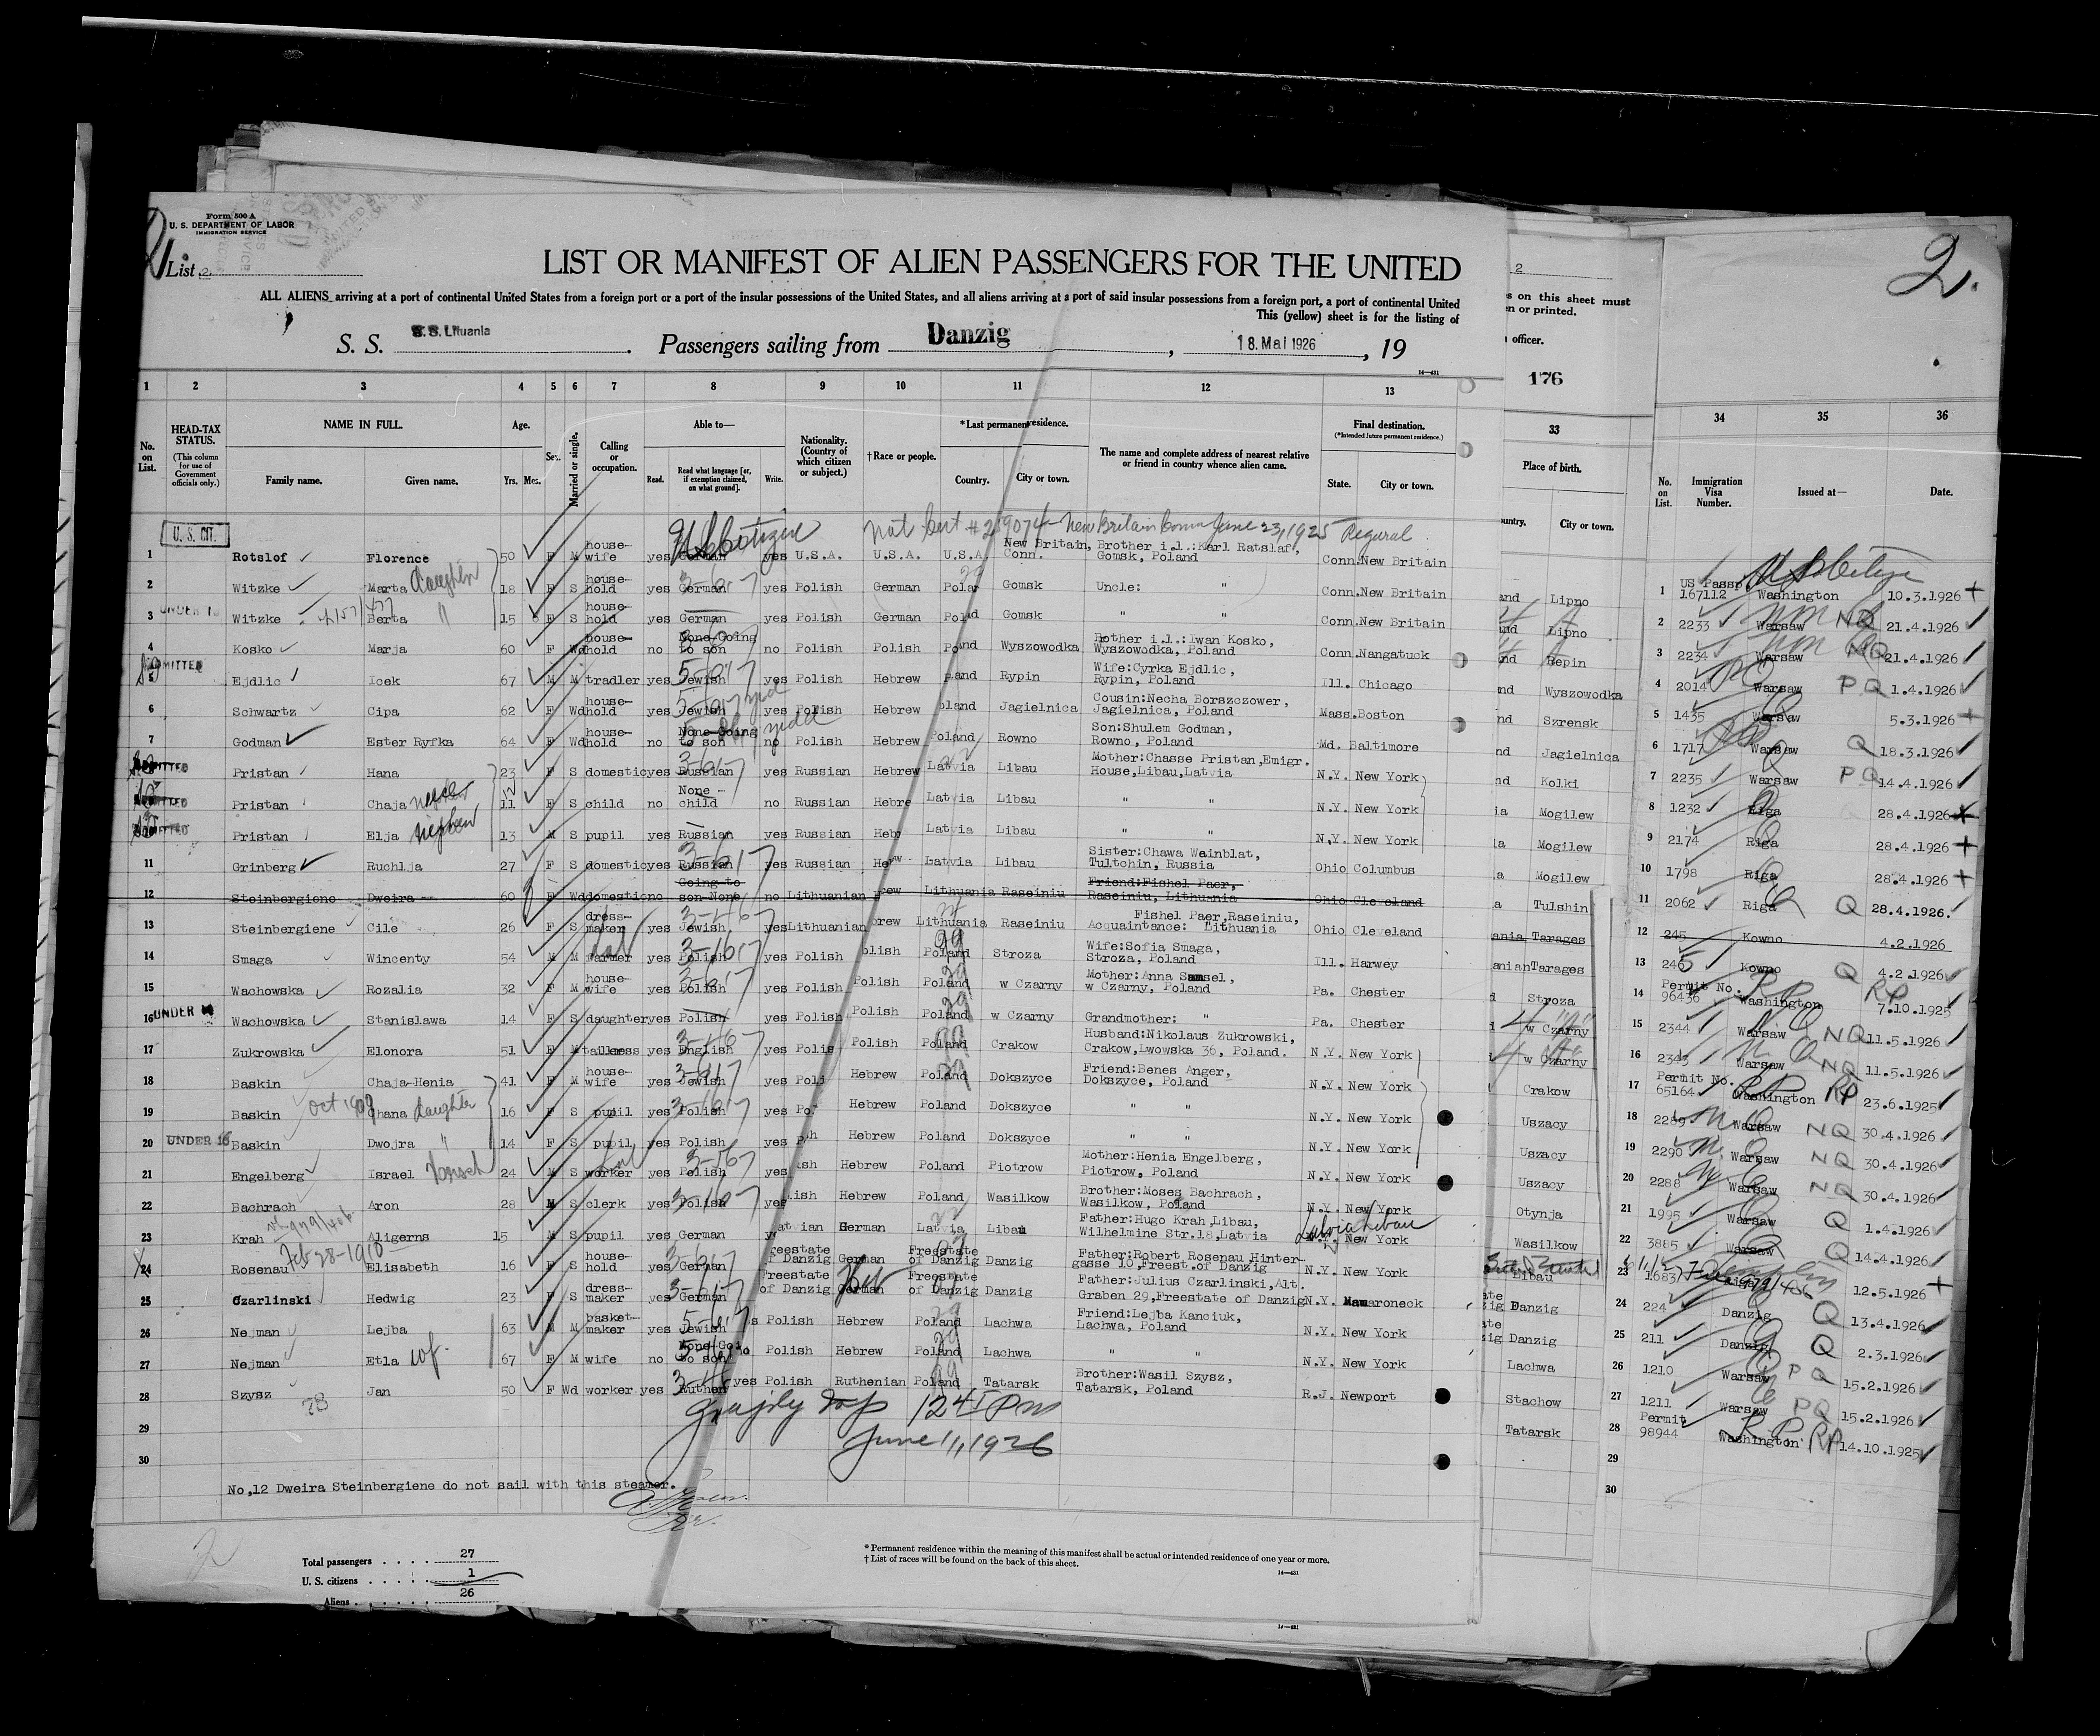 Form 500 A
U. S. DEPARTMENT OF LABOR
IMMIGRATION SERVICE
List 2
LIST OR MANIFEST OF ALIEN PASSENGERS FOR THE UNITED
ALL ALIENS arriving at a port of continental United States from a foreign port or a port of the insular possessions of the United States, and all aliens arriving at a port of said insular possessions from a foreign port, a port of continental United
This (yellow) sheet is for the listing of
S. S. S.S. Lituania. Passengers sailing from Danzig, 18. Mai 1926, 19
14—431
1 2 3 4 5 6 7 8 9 10 11 12 13
No. on List.
HEAD-TAX STATUS.
(This column for use of Government officials only.)
NAME IN FULL.
Family name. Given name.
Age.
Yrs. Mos.
Sex.
Married or single.
Calling or occupation.
Able to—
Read. Read what language [or, if exemption claimed, on what ground]. Write.
Nationality. (Country of which citizen or subject.)
†Race or people.
*Last permanent residence.
Country. City or town.
The name and complete address of nearest relative or friend in country whence alien came.
Final destination.
(*Intended future permanent residence.)
State. City or town.
U.S. Citizen Nat Cert # New Britain Conn June 23, 1925
U. S. CIT.
1 Rotslof Florence 50 F M house-wife yes German yes U.S.A. U.S.A. U.S.A. New Britain, Conn. Brother i.l.:Karl Ratslaf, Gomsk, Poland Conn. New Britain
2 Witzke Marta daughter 18 F S house-hold yes German yes Polish German Poland Gomsk Uncle: " Conn. New Britain
3 UNDER 16 Witzke Berta " 15 F S house-hold yes German yes Polish German Poland Gomsk " " Conn. New Britain
4 Kosko Marja 60 F Wd house-hold no None-Going to son no Polish Polish Poland Wyszowodka Bother i.l.:Iwan Kosko, Wyszowodka, Poland Conn. Nangatuck
5 ADMITTED Ejdlic Icek 67 M M tradler yes Jewish yes Polish Hebrew Poland Rypin Wife:Cyrka Ejdlic, Rypin, Poland Ill. Chicago
6 Schwartz Cipa 62 F Wd house-hold yes Jewish yes Polish Hebrew Poland Jagielnica Cousin:Necha Borszczower, Jagielnica, Poland Mass. Boston
7 Godman Ester Ryfka 64 F Wd house-hold no None-Going to son no Polish Hebrew Poland Rowno Son:Shulem Godman, Rowno, Poland Md. Baltimore
8 ADMITTED Pristan Hana 23 F S domestic yes Russian yes Russian Hebrew Latvia Libau Mother:Chasse Pristan,Emigr. House,Libau,Latvia N.Y. New York
9 ADMITTED Pristan Chaja 11 F S child no None - child no Russian Hebre Latvia Libau " " N.Y. New York
10 ADMITTED Pristan Elja nephew 13 M S pupil yes Russian yes Russian Heb Latvia Libau " " N.Y. New York
11 Grinberg Ruchlja 27 F S domestic yes Russian yes Russian Latvia Libau Sister:Chawa Weinblat, Tultchin, Russia Ohio Columbus
12 Steinbergiene Dweira 60 F Wd domestic no Going to son-None no Lithuanian rew Lithuania Raseiniu Friend:Fishel Paer, Raseiniu, Lithuania Ohio Cleveland
13 Steinbergiene Cile 26 F S dress-maker yes Jewish yes Lithuanian brew Lithuania Raseiniu Fishel Paer,Raseiniu, Acquaintance: Lithuania Ohio Cleveland
14 Smaga Wincenty 54 M M farmer yes Polish yes Polish olish Poland Stroza Wife:Sofia Smaga, Stroza, Poland Ill. Harvey
15 Wachowska Rozalia 32 F M house-wife yes Polish yes Polish Polish Poland w Czarny Mother:Anna Samsel, w Czarny, Poland Pa. Chester
16 UNDER 16 Wachowska Stanislawa 14 F S daughter yes Polish yes Polish Polish Poland w Czarny Grandmother: " Pa. Chester
17 Zukrowska Elonora 51 F M yes English yes Polis Polish Poland Crakow Husband:Nikolaus Zukrowski, Crakow,Lwowska 36, Poland. N.Y. New York
18 Baskin Chaja-Henia 41 F M house-wife yes Jewish yes Poli Hebrew Poland Dokszyce Friend:Benes Anger, Dokszyce, Poland N.Y. New York
19 Baskin Oct 1909 Chana daughter 16 F S pupil yes Polish yes Po Hebrew Poland Dokszyce " " N.Y. New York
20 UNDER 16 Baskin Dwojra " 14 F S pupil yes Polish yes Hebrew Poland Dokszyce " " N.Y. New York
21 Engelberg Israel Hersch 24 M S worker yes Polish yes ish Hebrew Poland Piotrow Mother:Henia Engelberg, Piotrow, Poland N.Y. New York
22 Bachrach Aron 28 M S clerk yes Polish yes lish Hebrew Poland Wasilkow Brother:Moses Bachrach, Wasilkow, Poland N.Y. New York
23 Krah Aligerns 15 M S pupil yes German Latvian German Latvia Libau Father:Hugo Krah,Libau, Wilhelmine Str.18,Latvia Latvia Libau New York
24 Rosenau Feb 28-1910 Elisabeth 16 F S house-hold yes German Freestate of Danzig German Freestate of Danzig Danzig Father:Robert Rosenau Hinter-gasse 10,Freest.of Danzig N.Y. New York
25 Czarlinski Hedwig 23 F S dress-maker yes German Freestate of Danzig German Freestate of Danzig Danzig Father:Julius Czarlinski,Alt. Graben 29,Freestate of Danzig N.Y. Mamaroneck
26 Nejman Lejba 63 M M basket-maker yes Jewish s Polish Hebrew Poland Lachwa Friend:Lejba Kanciuk, Lachwa, Poland N.Y. New York
27 Nejman Etla wf. 67 F M wife no None-Going to son no Polish Hebrew Poland Lachwa " " N.Y. New York
28 Szysz Jan 50 F Wd worker yes Ruthen yes Polish Ruthenian Poland Tatarsk Brother:Wasil Szysz, Tatarsk, Poland R.J. Newport
29
30
1245 Pm
June 11, 1926
No,12 Dweira Steinbergiene do not sail with this steamer.
Total passengers . . . . 27
U. S. citizens . . . . . 1
Aliens . . . . . . 26
* Permanent residence within the meaning of this manifest shall be actual or intended residence of one year or more.
† List of races will be found on the back of this sheet.
14—431
2
s on this sheet must
en or printed.
officer.
176
33
Place of birth.
untry. City or town.
and Lipno
and Lipno
and Repin
nd Wyszowodka
nd Szrensk
nd Jagielnica
nd Kolki
ia Mogilew
ia Mogilew
a Mogilew
a Tulshin
ania Tarages
anian Tarages
d Stroza
w Czarny
w Czarny
Crakow
Uszacy
Uszacy
Uszacy
Otynja
Wasilkow
Libau
zig Danzig
zig Danzig
Lachwa
Stachow
Tatarsk
2.
34 35 36
No. on List. Immigration Visa Number. Issued at— Date.
1 US Passp 167112 US Citizen Washington 10.3.1926
2 2233 Warsaw NQ 21.4.1926
3 2234 Warsaw NQ 21.4.1926
4 2014 Warsaw PQ 1.4.1926
5 1435 Warsaw 5.3.1926
6 1717 Warsaw Q 18.3.1926
7 2235 Warsaw PQ 14.4.1926
8 1232 Riga 28.4.1926
9 2174 Riga 28.4.1926
10 1798 Riga 28.4.1926
11 2062 Riga Q 28.4.1926.
12 245 Kowno 4.2.1926
13 245 Kowno Q 4.2.1926
14 Permit No. 96436 Washington RP 7.10.1925
15 2344 Warsaw NQ 11.5.1926
16 2343 Warsaw NQ 11.5.1926
17 Permit No. 65164 Washington RP 23.6.1925
18 2289 Warsaw NQ 30.4.1926
19 2290 Warsaw NQ 30.4.1926
20 2288 Warsaw NQ 30.4.1926
21 1995 Warsaw Q 1.4.1926
22 3885 Warsaw Q 14.4.1926
23 1683 Riga 12.5.1926
24 224 Danzig Q 13.4.1926
25 211 Danzig Q 2.3.1926
26 1210 Warsaw PQ 15.2.1926
27 1211 Warsaw PQ 15.2.1926
28 Permit 98944 Washington RP 14.10.1925
29
30